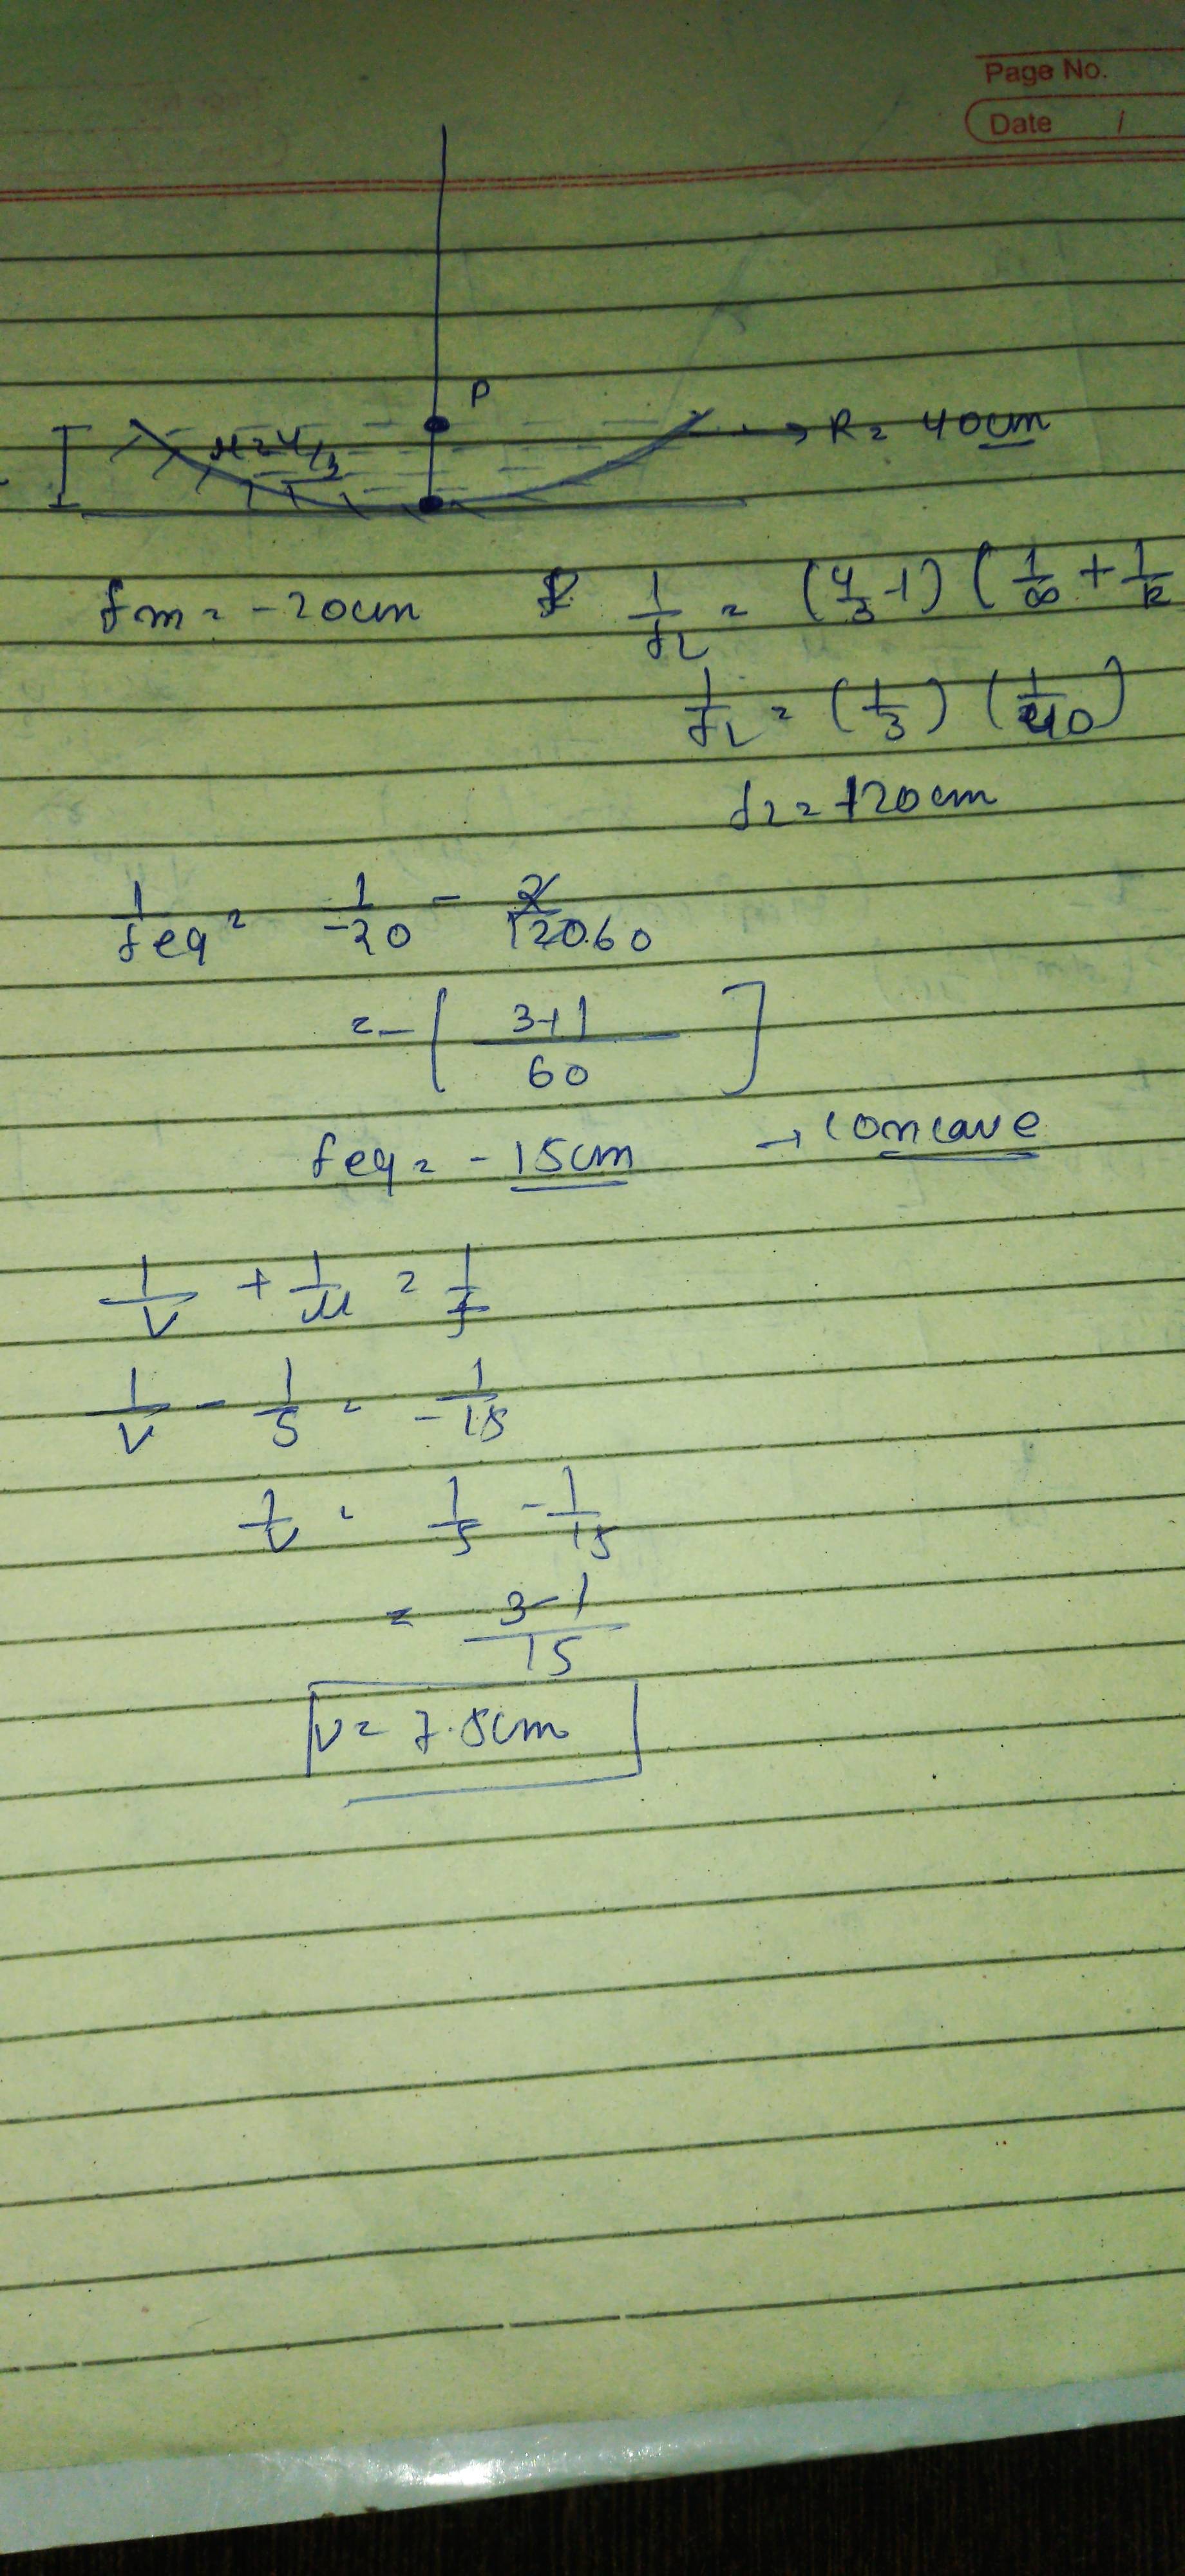 Page No.
Date /
P
μ = 4/3
→ R = 40cm
fm = -20cm
1/fL = (4/3 - 1) (1/∞ + 1/R
1/fL = (1/3) (1/40)
fL = 120cm
1/feq = 1/-20 - 2/120 60
= - [ 3+1/60 ]
feq = - 15cm → concave
1/v + 1/u = 1/f
1/v - 1/5 = -1/15
1/v = 1/5 - 1/15
= 3-1/15
v = 7.5cm